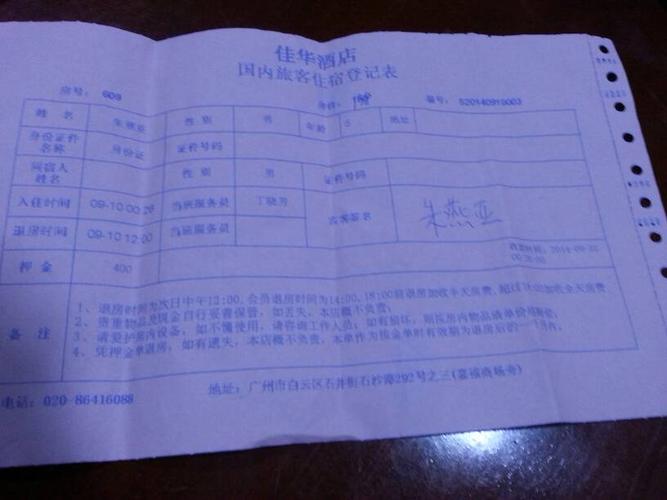 佳华酒店
国内旅客住宿登记表
房号: 609 房价: 188 编号: S20140910003
姓 名 朱燕亚 性 别 男 年龄 5 地址
身份证件名称 身份证 证件号码
同宿人姓名 性 别 男 证件号码
入住时间 09-10 00:26 当班服务员 丁晓芳 宾客签名 朱燕亚
退房时间 09-10 12:00 当班服务员
押 金 400
备 注
1、退房时间为次日中午12:00,会员退房时间为14:00,18:00前退房加收半天房费,超过18:00加收全天房费,
2、贵重物品及现金自行妥善保管,如丢失,本店概不负责;
3、请爱护房内设备,如不懂使用,请咨询工作人员;如有损坏,则按房内物品清单价
4、凭押金单退房,如有遗失,本店概不负责,本单作为押金单时有效期为退房后的一个月内;
电话: 020-86416088 地址: 广州市白云区石井街石沙路292号之三(嘉禧商场旁)